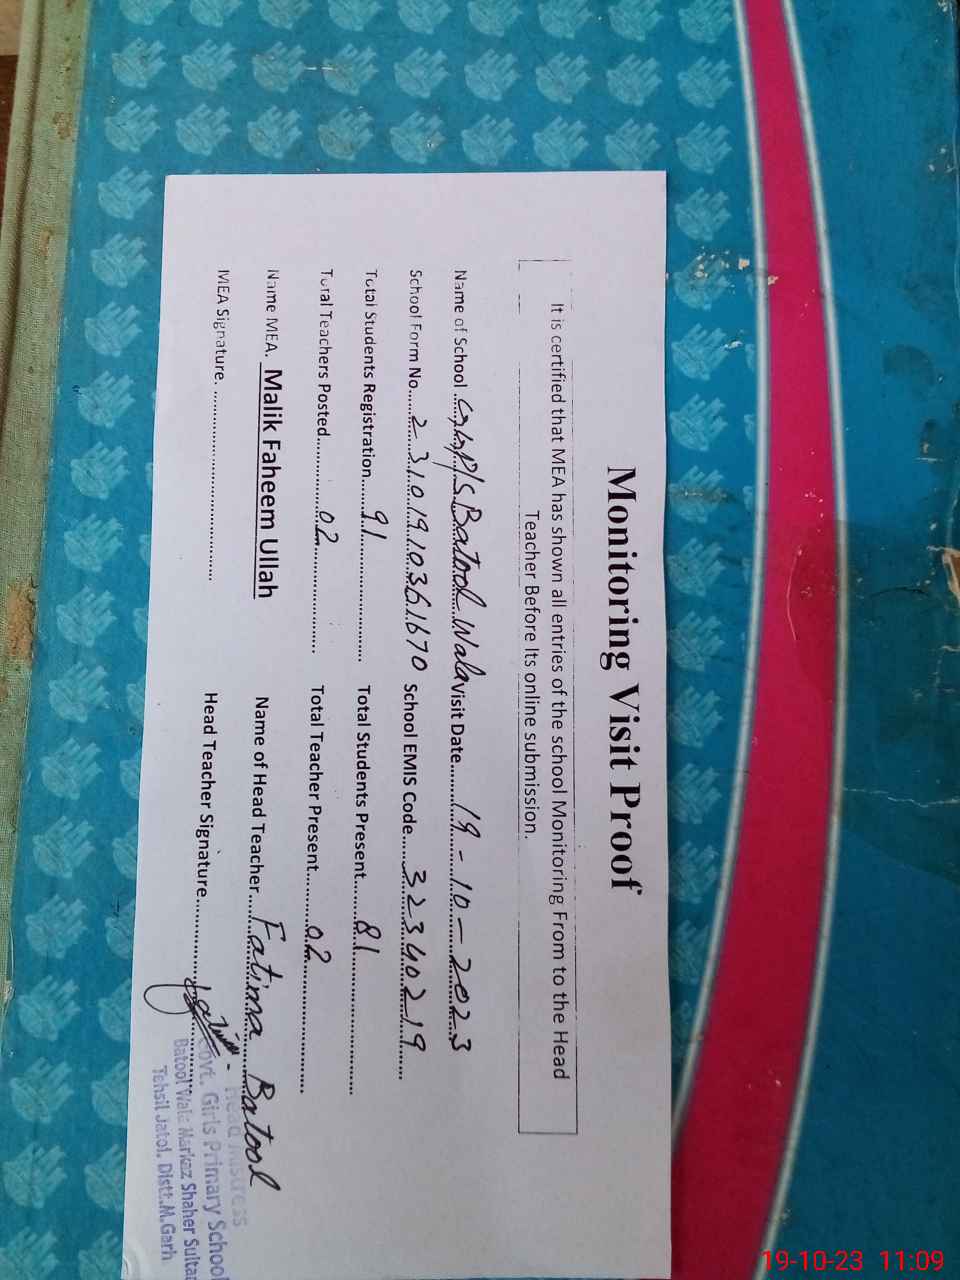 Monitoring Visit Proof
It is certified that MEA has shown all entries of the school Monitoring From to the Head
Teacher Before Its online submission.
Name of School GGP/S Batool Wala Visit Date 19-10-2023
School Form No. 23101910361670 School EMIS Code 32340219
Total Students Registration 91 Total Students Present 81
Total Teachers Posted 02 Total Teacher Present 02
Name MEA. Malik Faheem Ullah Name of Head Teacher. Fatima Batool
MEA Signature. Head Teacher Signature
Head Mistress
Govt. Girls Primary School
Batool Wala Markaz Shaher Sultan
Tehsil Jatoi. Distt.M.Garh
19-10-23 11:09